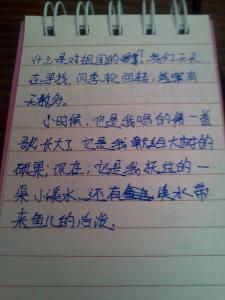 什么是对祖国的爱？我们天天
在寻找，四季轮回转，答案有
千万。
小时候，它是我唱的第一首
歌；长大了，它是我献给大树的
硕果；现在，它是我扶过的一
渠小溪水，还有溪水带
来鱼儿的活泼。